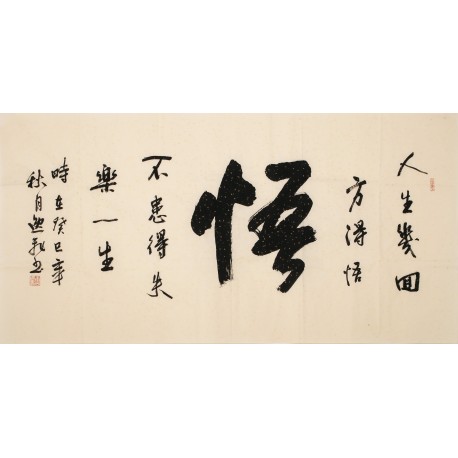 人生幾回
方得悟
悟
不患得失
樂一生
時在癸巳年
秋月